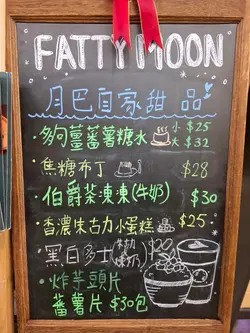 FATTY MOON
月巴自家甜品
・多向薑蕃薯糖水 小 $25
大 $32
・焦糖布丁 $28
・伯爵茶凍凍(牛奶) $30
・香濃朱古力小蛋糕 $25
・黑白多士 $20
・炸芋頭片
蕃薯片 $30包